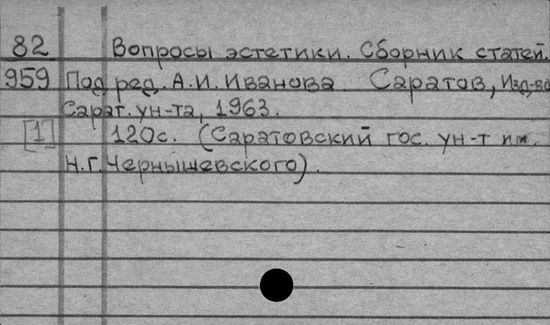 82 Вопросы эстетики. Сборник статей.
959 Под ред. А.И. Иванова. Саратов, Изд-во
Сарат. ун-та, 1963.
[1] 120с. (Саратовский гос. ун-т им.
Н.Г. Чернышевского).